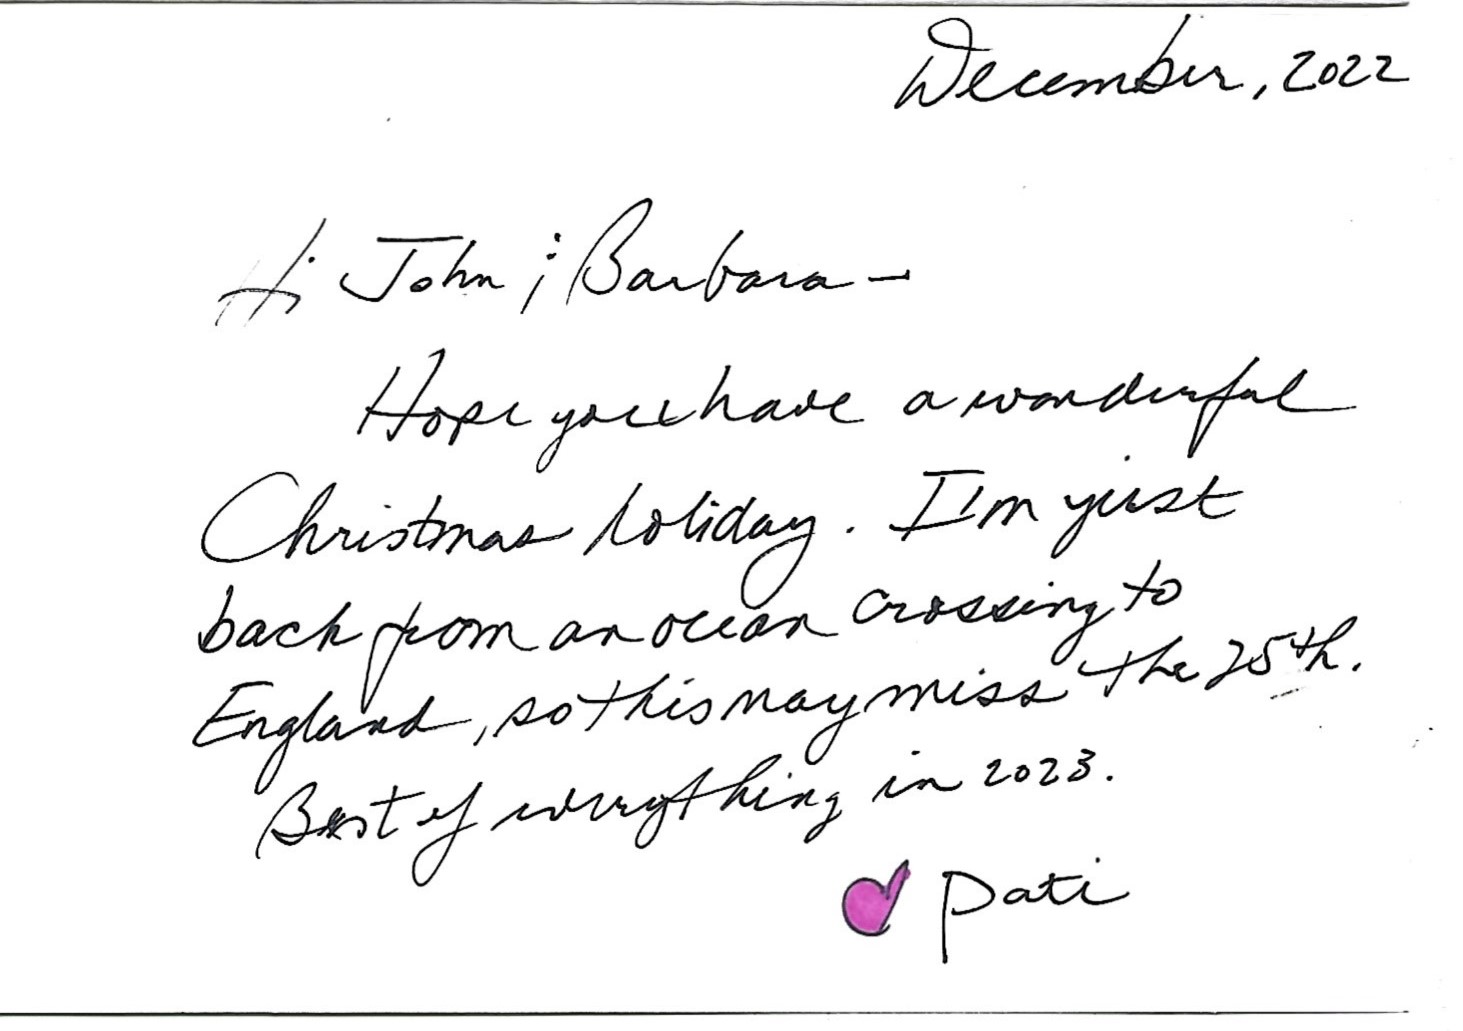 December, 2022
Hi John & Barbara –
Hope you have a wonderful
Christmas holiday. I'm just
back from an ocean crossing to
England, so this may miss the 25th.
Best of everything in 2023.
Pati